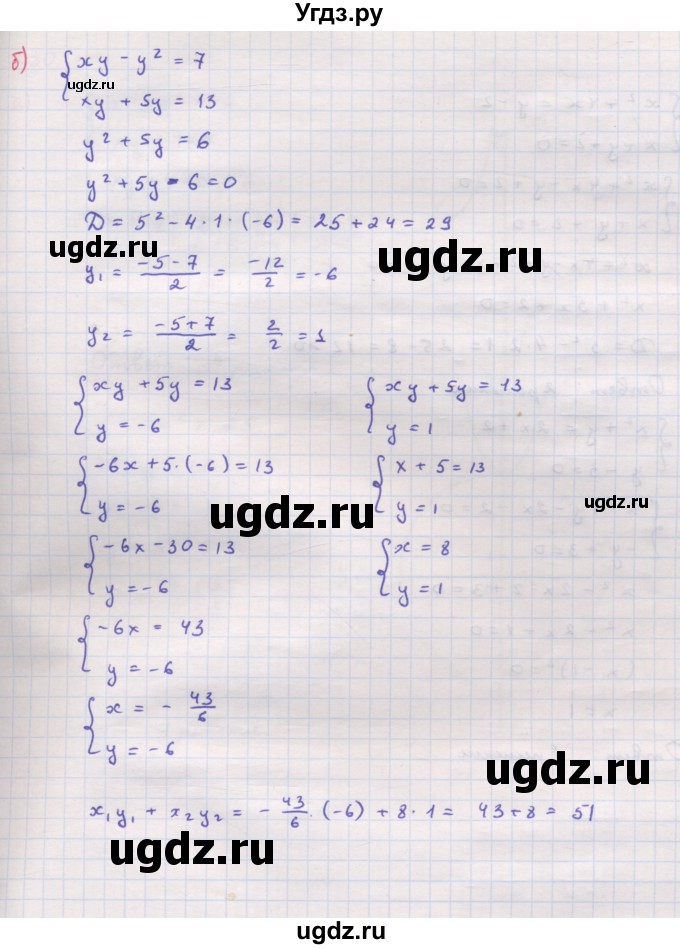 Угдз.ру
б) { xy - y² = 7
ugdz.ru
xy + 5y = 13
y² + 5y = 6
y² + 5y - 6 = 0
D = 5² - 4 · 1 · (-6) = 25 + 24 = 29
ugdz.ru ugdz.ru
y₁ = (-5 - 7)/2 = -12/2 = -6
y₂ = (-5 + 7)/2 = 2/2 = 1
{ xy + 5y = 13 { xy + 5y = 13
y = -6 y = 1
{ -6x + 5 · (-6) = 13 { x + 5 = 13
y = -6 y = 1
ugdz.ru ugdz.ru
{ -6x - 30 = 13 { x = 8
y = -6 y = 1
{ -6x = 43
y = -6
{ x = - 43/6
y = -6
ugdz.ru
x₁y₁ + x₂y₂ = - 43/6 · (-6) + 8 · 1 = 43 + 8 = 51
ugdz.ru
ugdz.ru